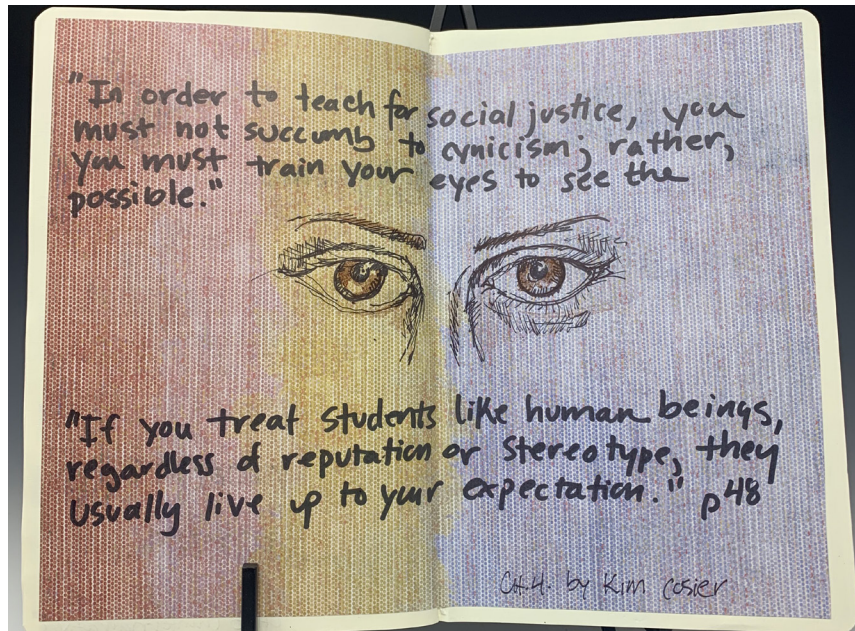 "In order to teach for social justice, you
must not succumb to cynicism; rather,
you must train your eyes to see the
possible."
"If you treat students like human beings,
regardless of reputation or stereotype, they
usually live up to your expectation." p48
CH.4. by Kim Cosier